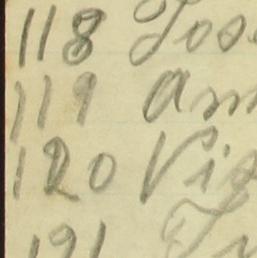 118 Jos
119 Am
120 Vi
121